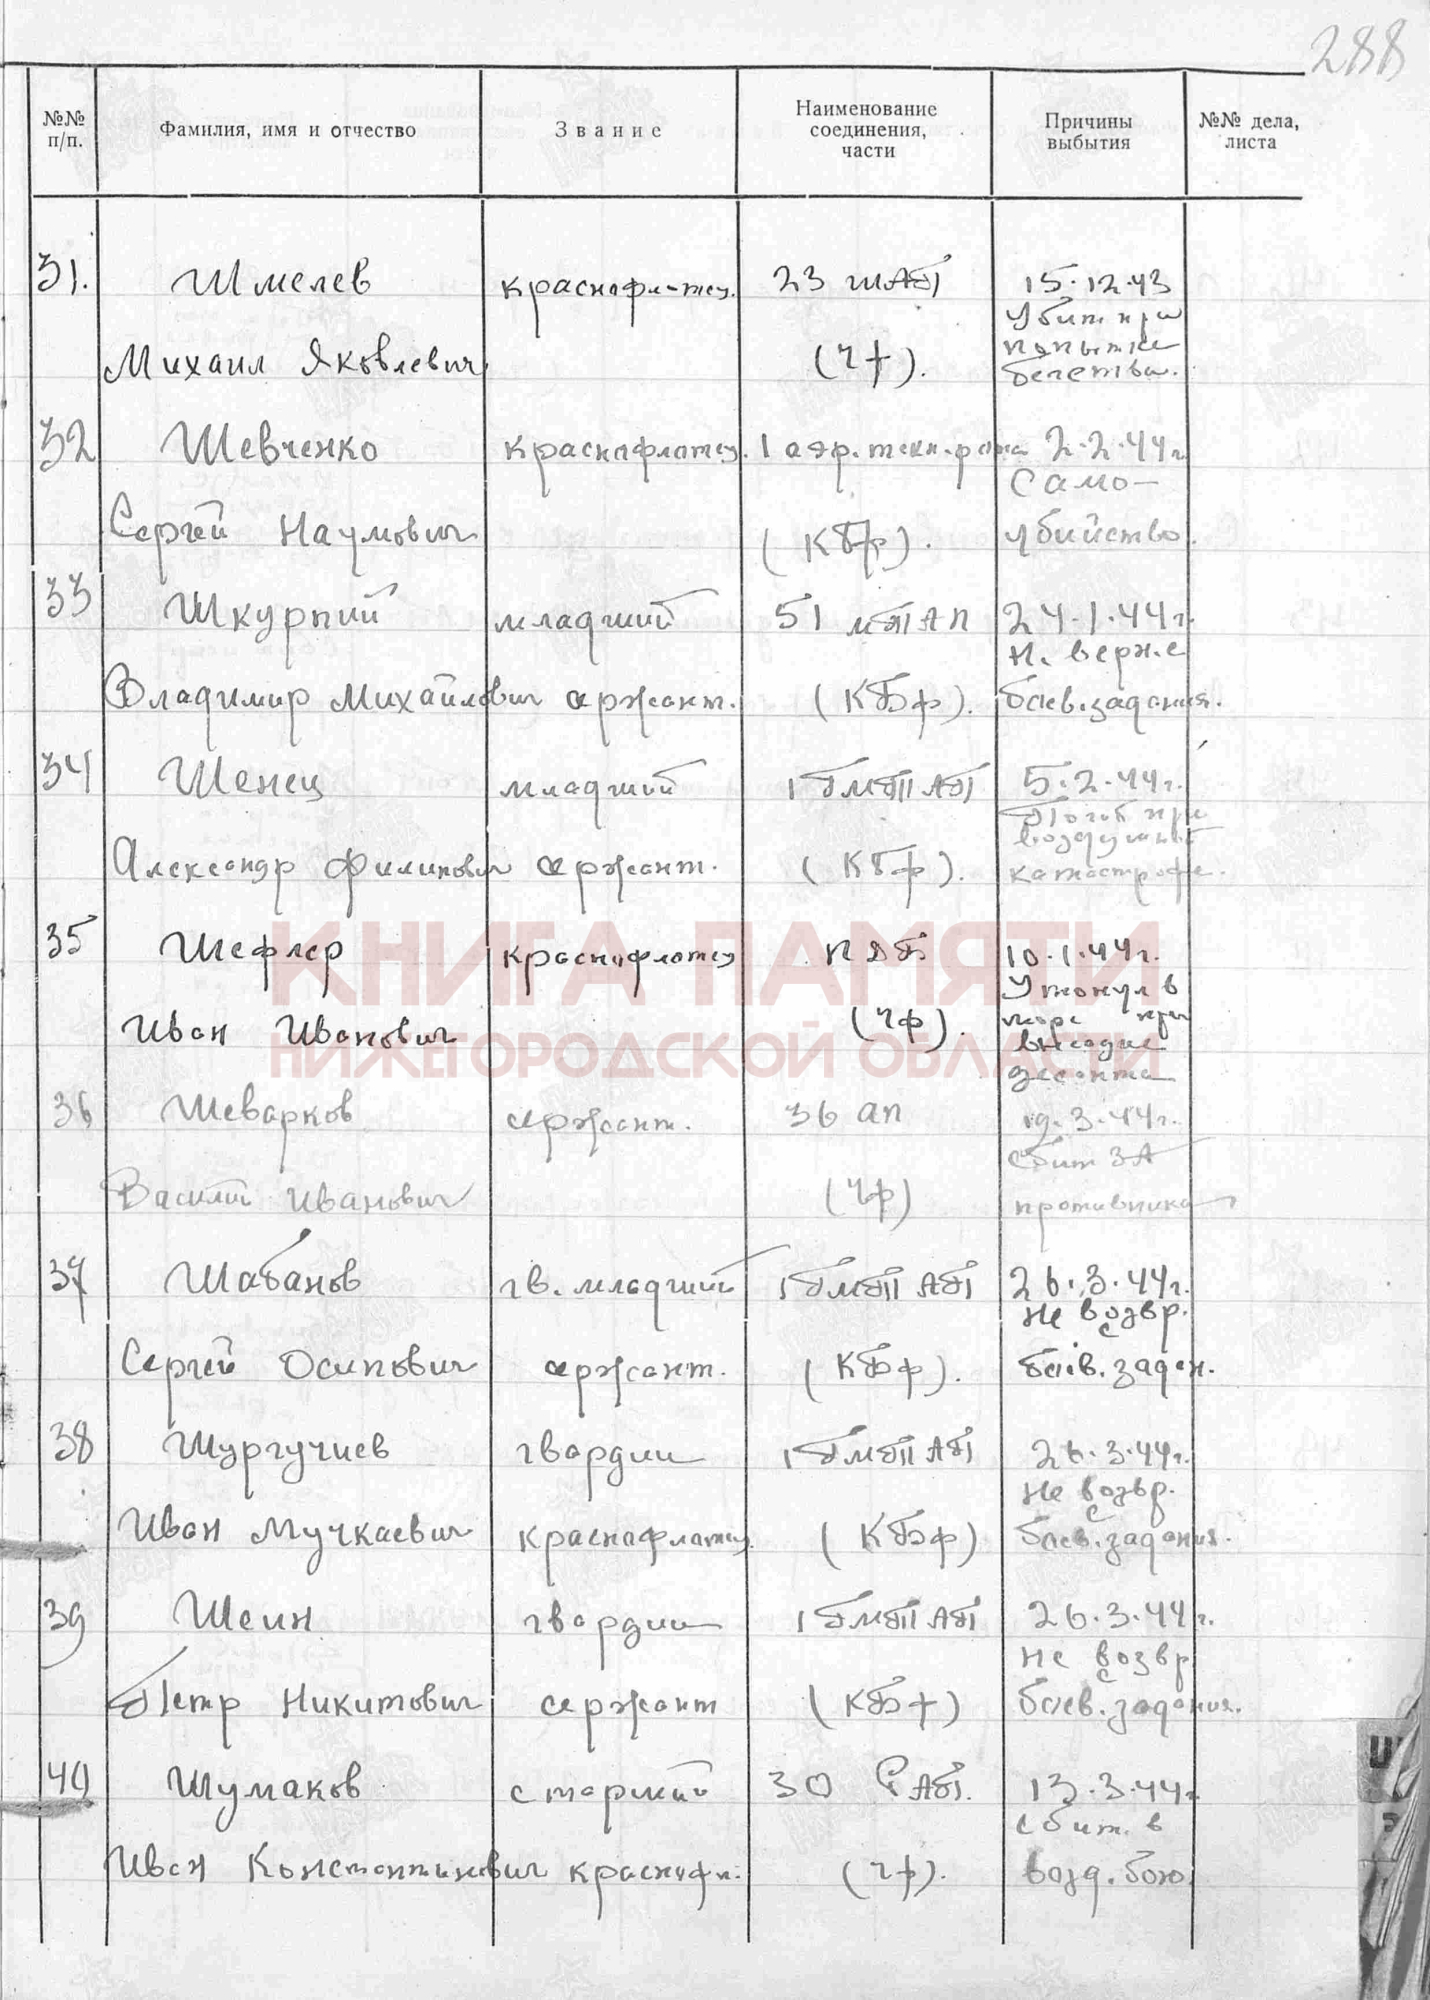 288
№№ п/п.
Фамилия, имя и отчество
Звание
Наименование соединения, части
Причины выбытия
№№ дела, листа
31. Шмелев краснофл-тец. 23 шАП 15.12.43
Убит при
Михаил Яковлевич (Чф). попытке
бегства.
32 Шевченко краснофлотец. 1 аэр. техн. рота 2.2.44 г.
само-
Сергей Наумович (КБф). убийство.
33 Шкурпий младший 51 мТАП 24.1.44 г.
Н. верн. с
Владимир Михайлович сержант. (КБф). боев. задания.
34 Шенец младший 1 ГМТАП 5.2.44 г.
Погиб при
воздушной
Александр Филипович сержант. (КБф). катастрофе.
35 Шефлер краснофлотец ПДБ 10.1.44 г.
Утонул в
Иван Иванович (Чф). море при
высадке
десанта
КНИГА ПАМЯТИ
НИЖЕГОРОДСКОЙ ОБЛАСТИ
36 Шеварков сержант. 36 ап 19.3.44 г.
сбит ЗА
Василий Иванович (Чф) противника
37 Шабанов гв. младший 1 ГМТАП 26.3.44 г.
Не возвр.
с
Сергей Осипович сержант. (КБф). боев. задан.
38 Шургучиев гвардии 1 ГМТАП 26.3.44 г.
Не возвр.
с
Иван Мучкаевич краснофлотец. (КБф) боев. задания.
39 Шеин гвардии 1 ГМТАП 26.3.44 г.
Не возвр
с
Петр Никитович сержант (КБф) боев. задания.
40 Шумаков старший 30 РАП. 13.3.44 г.
сбит. в
Иван Константинович краснофл. (Чф). возд. бою.